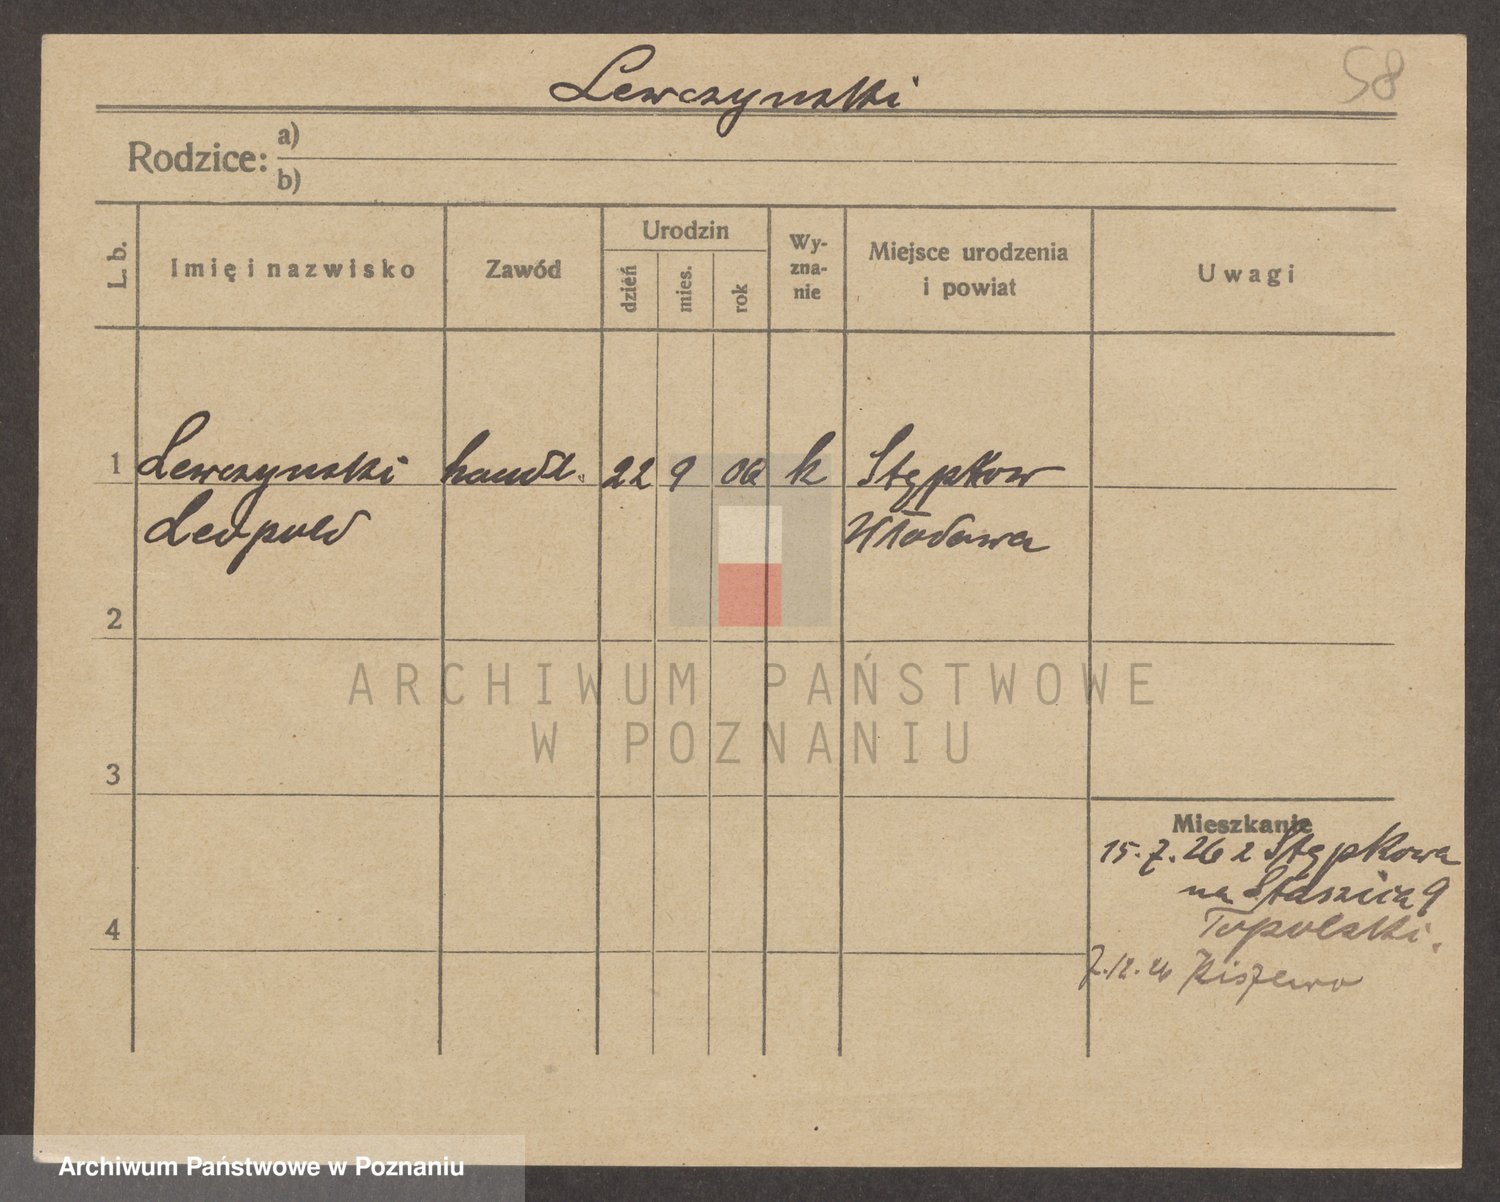 Lewczynski
58
Rodzice: a)
b)
L. b.
Imię i nazwisko
Zawód
Urodzin
dzień
mies.
rok
Wy-
zna-
nie
Miejsce urodzenia
i powiat
Uwagi
1 Lewczynski handl. 22 9 06 k Stępków
Leopold Włodawa
2
3
4
Mieszkanie
15.7.26 z Stępkowa
na Staszica 9
Topolski.
7.12.26 Kiszewo
ARCHIWUM PAŃSTWOWE
W POZNANIU
Archiwum Państwowe w Poznaniu